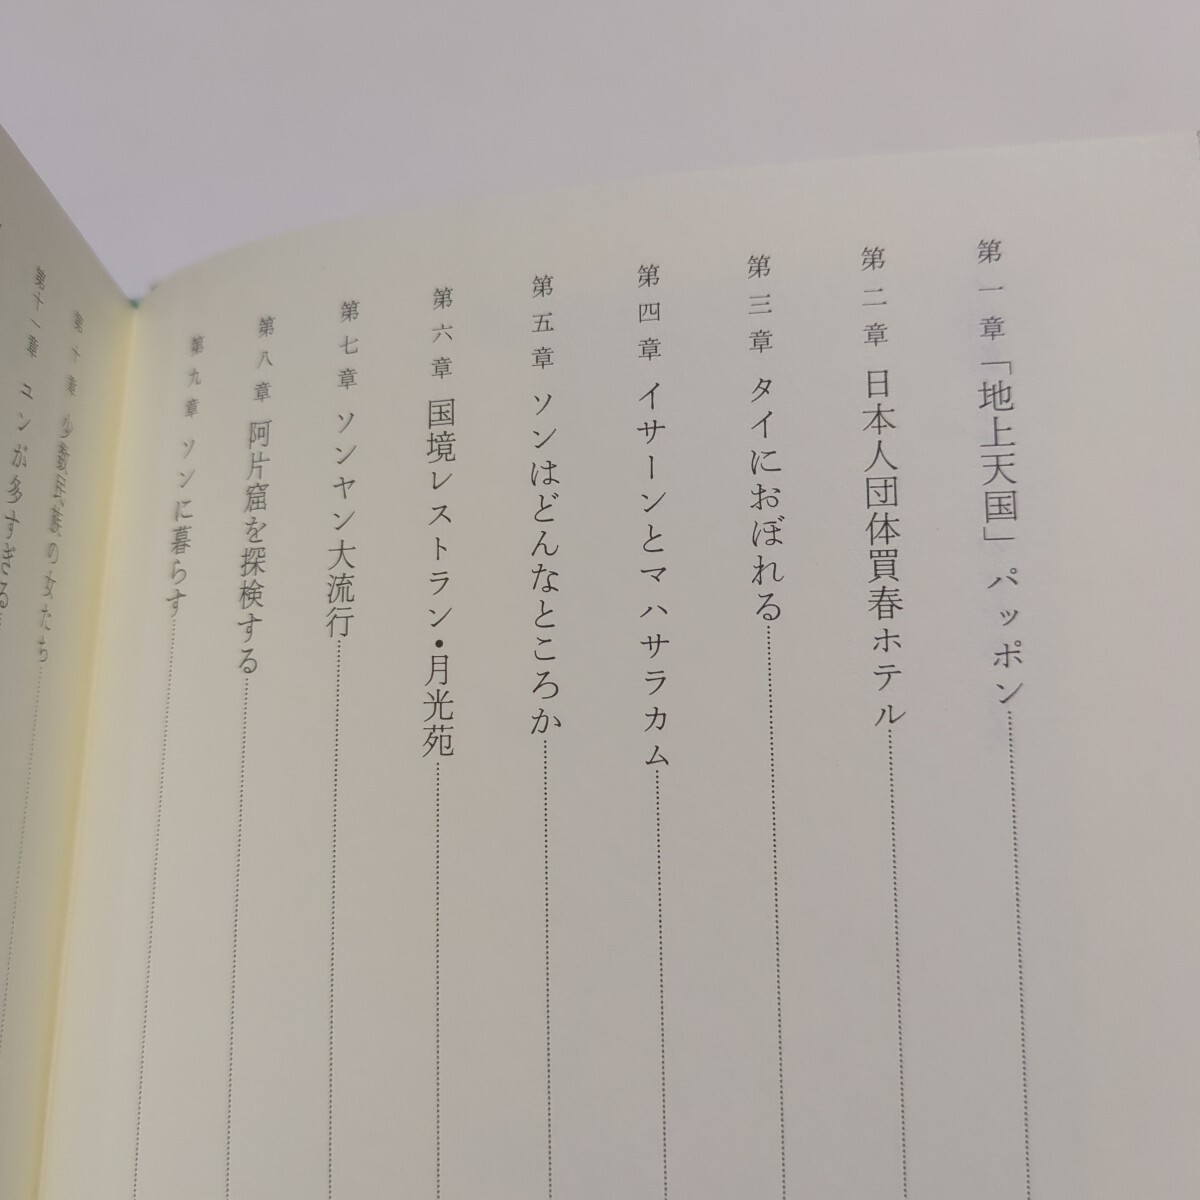 第一章 「地上天国」パッポン
第二章 日本人団体買春ホテル
第三章 タイにおぼれる
第四章 イサーンとマハサラカム
第五章 ソンはどんなところか
第六章 国境レストラン・月光苑
第七章 ソンヤン大流行
第八章 阿片窟を探検する
第九章 ソンに暮らす
第十章 少数民族の女たち
第十一章 ユンが多すぎる